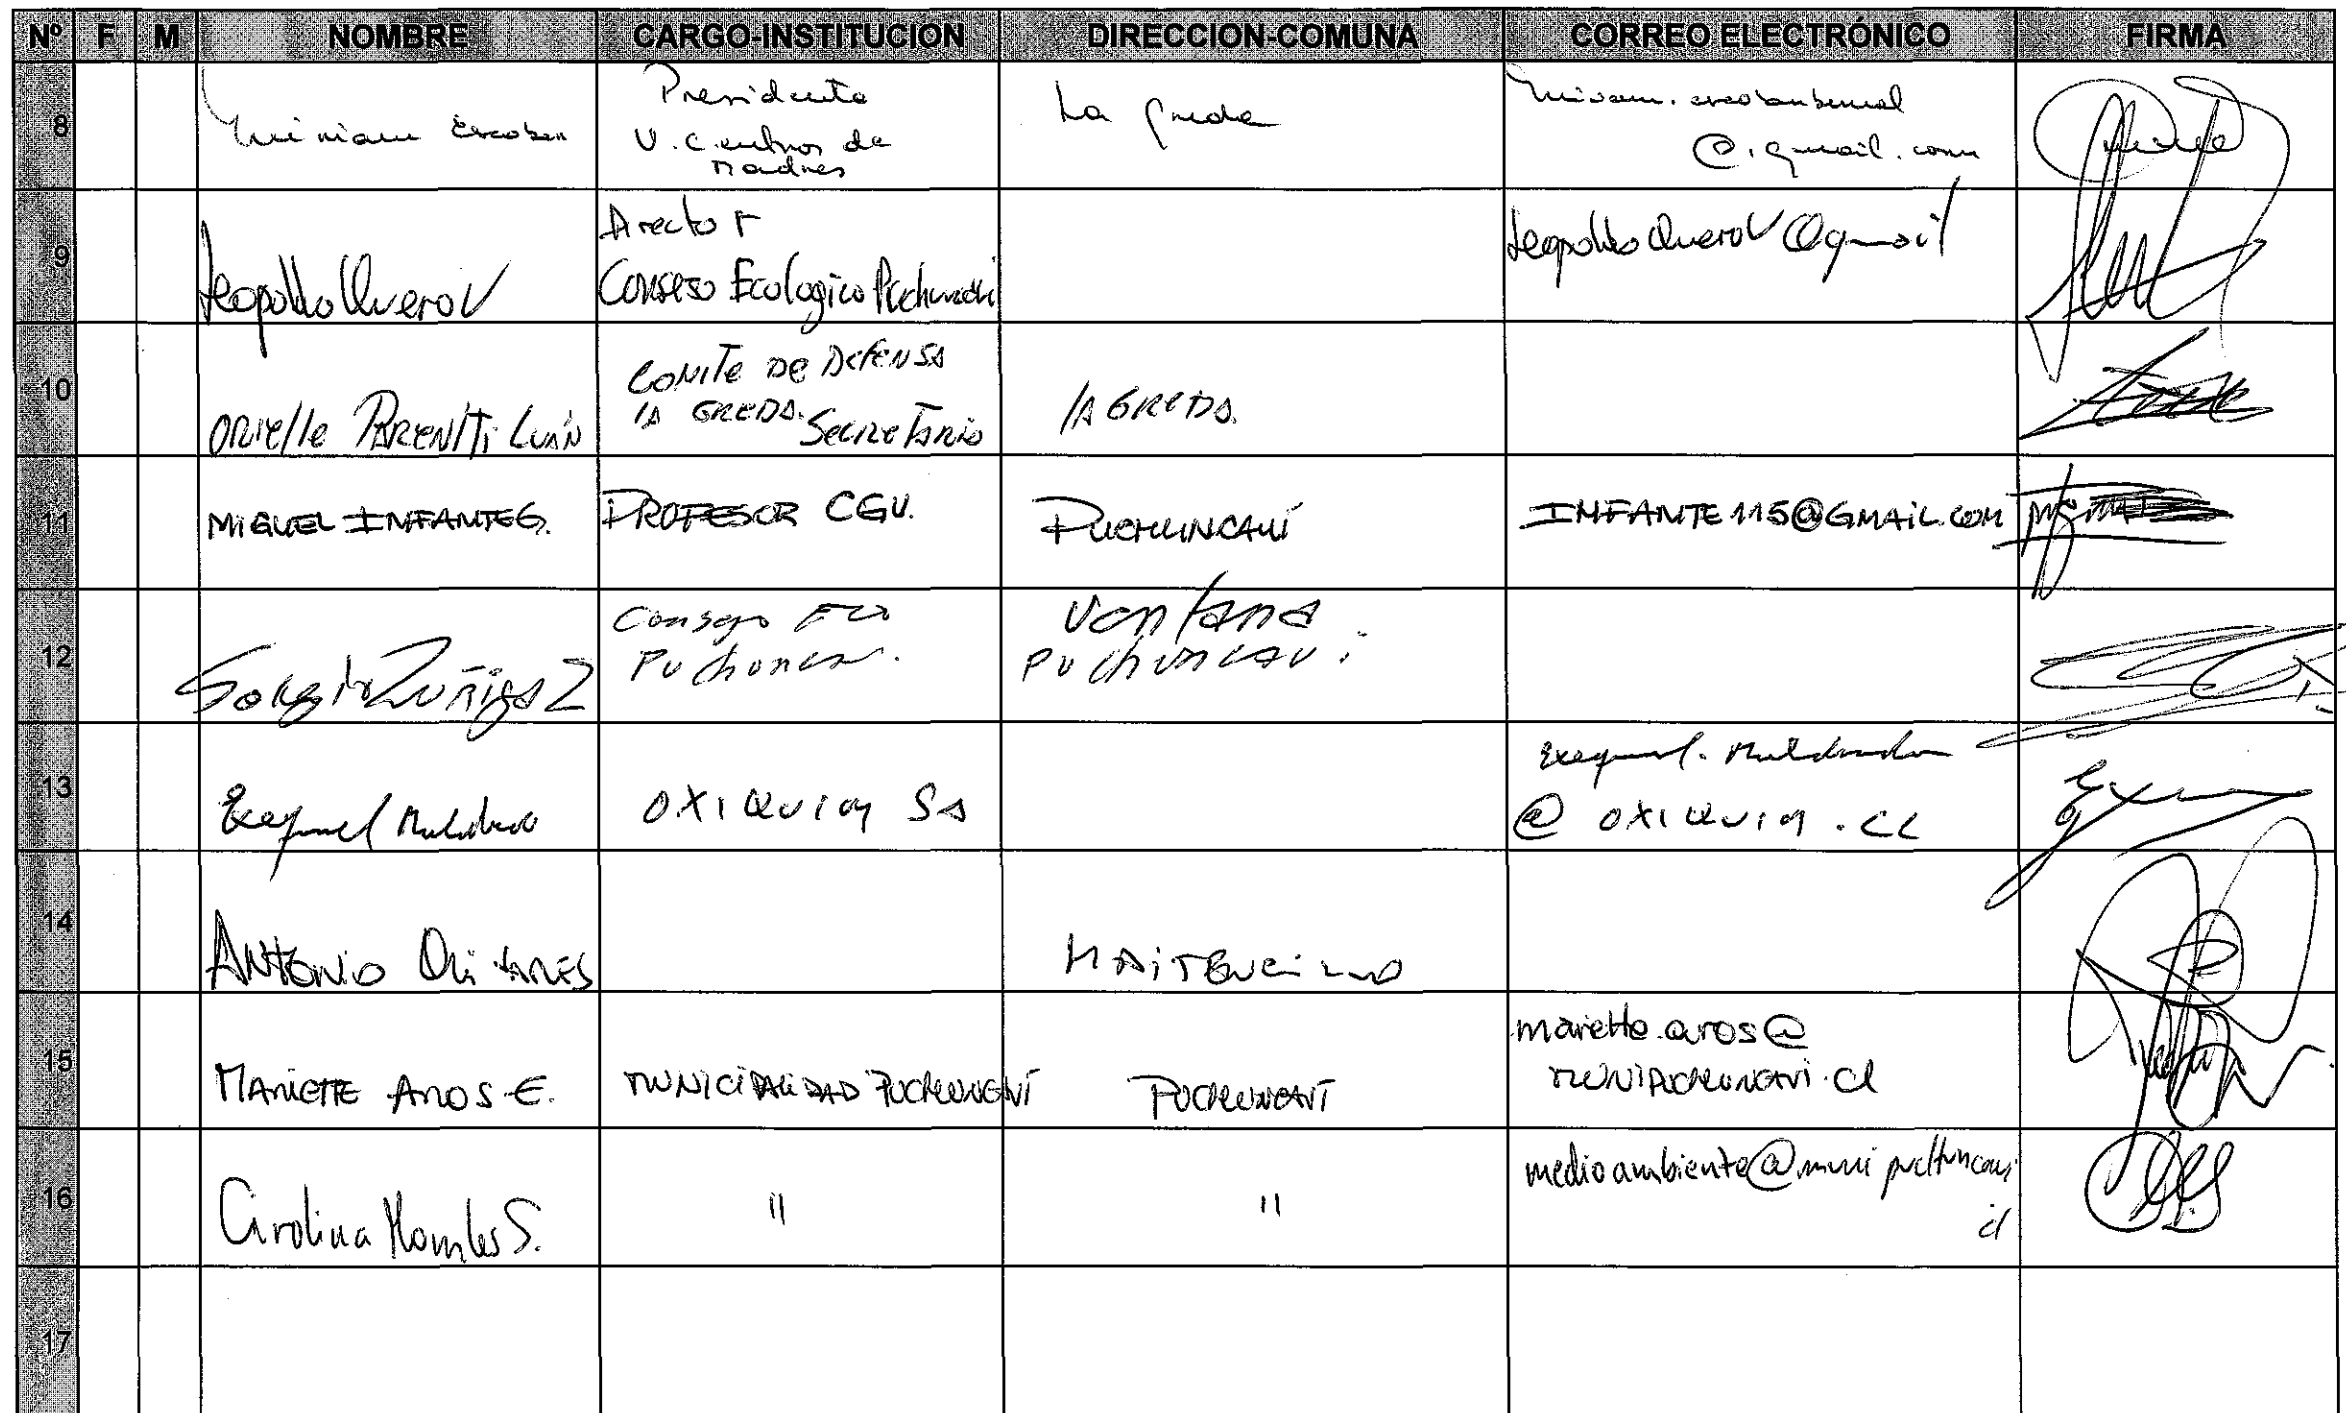 Nº F M NOMBRE CARGO-INSTITUCION DIRECCION-COMUNA CORREO ELECTRÓNICO FIRMA
8 Miriam Escobar Presidenta La Greda
U. Centros de
Madres @.gmail.com
9 Leopoldo Quero V Director
Consejo Ecologico Puchuncavi
LeopoldoQueroV@gmail
10 ORIELLE COMITE DE DEFENSA
LA GREDA. Secretario LA GREDA.
11 MIGUEL INFANTE G. PROFESOR CGV. PUCHUNCAVÍ INFANTE115@GMAIL.COM
12 Sergio Zuñiga Z Consejo Eco Ventana
Puchuncavi
13 Exequiel Maldonado OXIQUIM SA Exequiel.Maldonado
@ OXIQUIM.CL
14 ANTONIO MAITENCILLO
15 MARIETTE AROS E. MUNICIPALIDAD PUCHUNCAVÍ PUCHUNCAVÍ mariette.aros@
MUNIPUCHUNCAVI.cl
16 Carolina Morales S. " " medioambiente@munipuchuncavi
cl
17